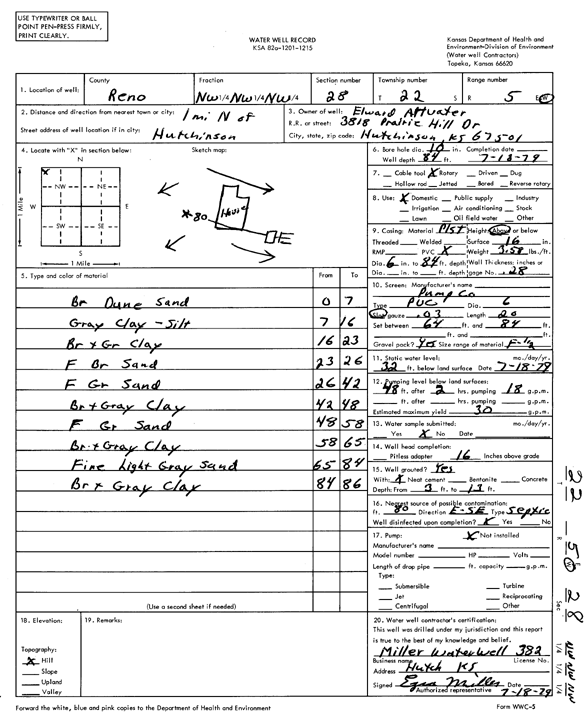 USE TYPEWRITER OR BALL
POINT PEN-PRESS FIRMLY,
PRINT CLEARLY.
WATER WELL RECORD
KSA 82a-1201-1215
Kansas Department of Health and
Environment-Division of Environment
(Water well Contractors)
Topeka, Kansas 66620
1. Location of well:
County
Reno
Fraction
NW 1/4 NW 1/4 NW 1/4
Section number
28
Township number
T 22 S
Range number
R 5 E/W
2. Distance and direction from nearest town or city: 1 mi N of
Street address of well location if in city: Hutchinson
3. Owner of well: Elward Attwater
R.R. or street: 3818 Prairie Hill Dr
City, state, zip code: Hutchinson, KS 67501
4. Locate with "X" in section below:
Sketch map:
N
X
NW NE
W E
SW SE
S
1 Mile
1 Mile
X 80
House
6. Bore hole dia. 10 in. Completion date
Well depth 84 ft. 7-18-79
7. Cable tool X Rotary Driven Dug
Hollow rod Jetted Bored Reverse rotary
8. Use: X Domestic Public supply Industry
Irrigation Air conditioning Stock
Lawn Oil field water Other
9. Casing: Material Plst Height: Above or below
Threaded Welded Surface 16 in.
RMP PVC X Weight 3.58 lbs./ft.
Dia. 6 in. to 84 ft. depth Wall Thickness: inches or
Dia. in. to ft. depth gage No. .28
5. Type and color of material
From To
Br Dune Sand 0 7
Gray Clay - Silt 7 16
Br + Gr Clay 16 23
F Br Sand 23 26
F Gr Sand 26 42
Br + Gray Clay 42 48
F Gr Sand 48 58
Br + Gray Clay 58 65
Fine Light Gray Sand 65 84
Br + Gray Clay 84 86
(Use a second sheet if needed)
10. Screen: Manufacturer's name
Pump Co
Type PVC Dia. 6
Slot/gauze .03 Length 20
Set between 64 ft. and 84 ft.
ft. and ft.
Gravel pack? yes Size range of material F-1/2
11. Static water level: mo./day/yr.
32 ft. below land surface Date 7-18-79
12. Pumping level below land surfaces:
48 ft. after 2 hrs. pumping 18 g.p.m.
ft. after hrs. pumping g.p.m.
Estimated maximum yield 30 g.p.m.
13. Water sample submitted: mo./day/yr.
Yes X No Date
14. Well head completion:
Pitless adapter 16 Inches above grade
15. Well grouted? Yes
With: X Neat cement Bentonite Concrete
Depth: From 3 ft. to 13 ft.
16. Nearest source of possible contamination:
ft. 80 Direction E-SE Type Septic
Well disinfected upon completion? X Yes No
17. Pump: X Not installed
Manufacturer's name
Model number HP Volts
Length of drop pipe ft. capacity g.p.m.
Type:
Submersible Turbine
Jet Reciprocating
Centrifugal Other
18. Elevation:
Topography:
X Hill
Slope
Upland
Valley
19. Remarks:
20. Water well contractor's certification:
This well was drilled under my jurisdiction and this report
is true to the best of my knowledge and belief.
Miller Waterwell 382
Business name License No.
Address Hutch KS
Signed Ezra Miller Date 7-18-79
Authorized representative
Forward the white, blue and pink copies to the Department of Health and Environment
Form WWC-5
22 - 5W 28
Sec
NW NW NW
1/4 1/4 1/4